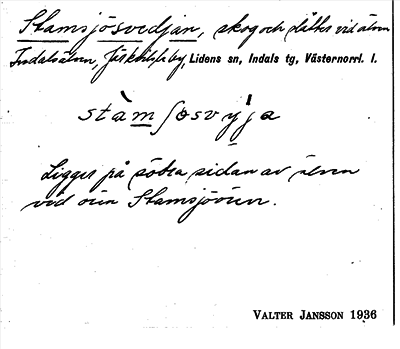 Stamsjösvedjan, skog och slåtter vid älven
Indalsälven, Järkvitsle by, Lidens sn, Indals tg, Västernorrl. l.
stàm ʃøsvyja
Ligger på södra sidan av älven
vid ön Stamsjöön.
VALTER JANSSON 1936